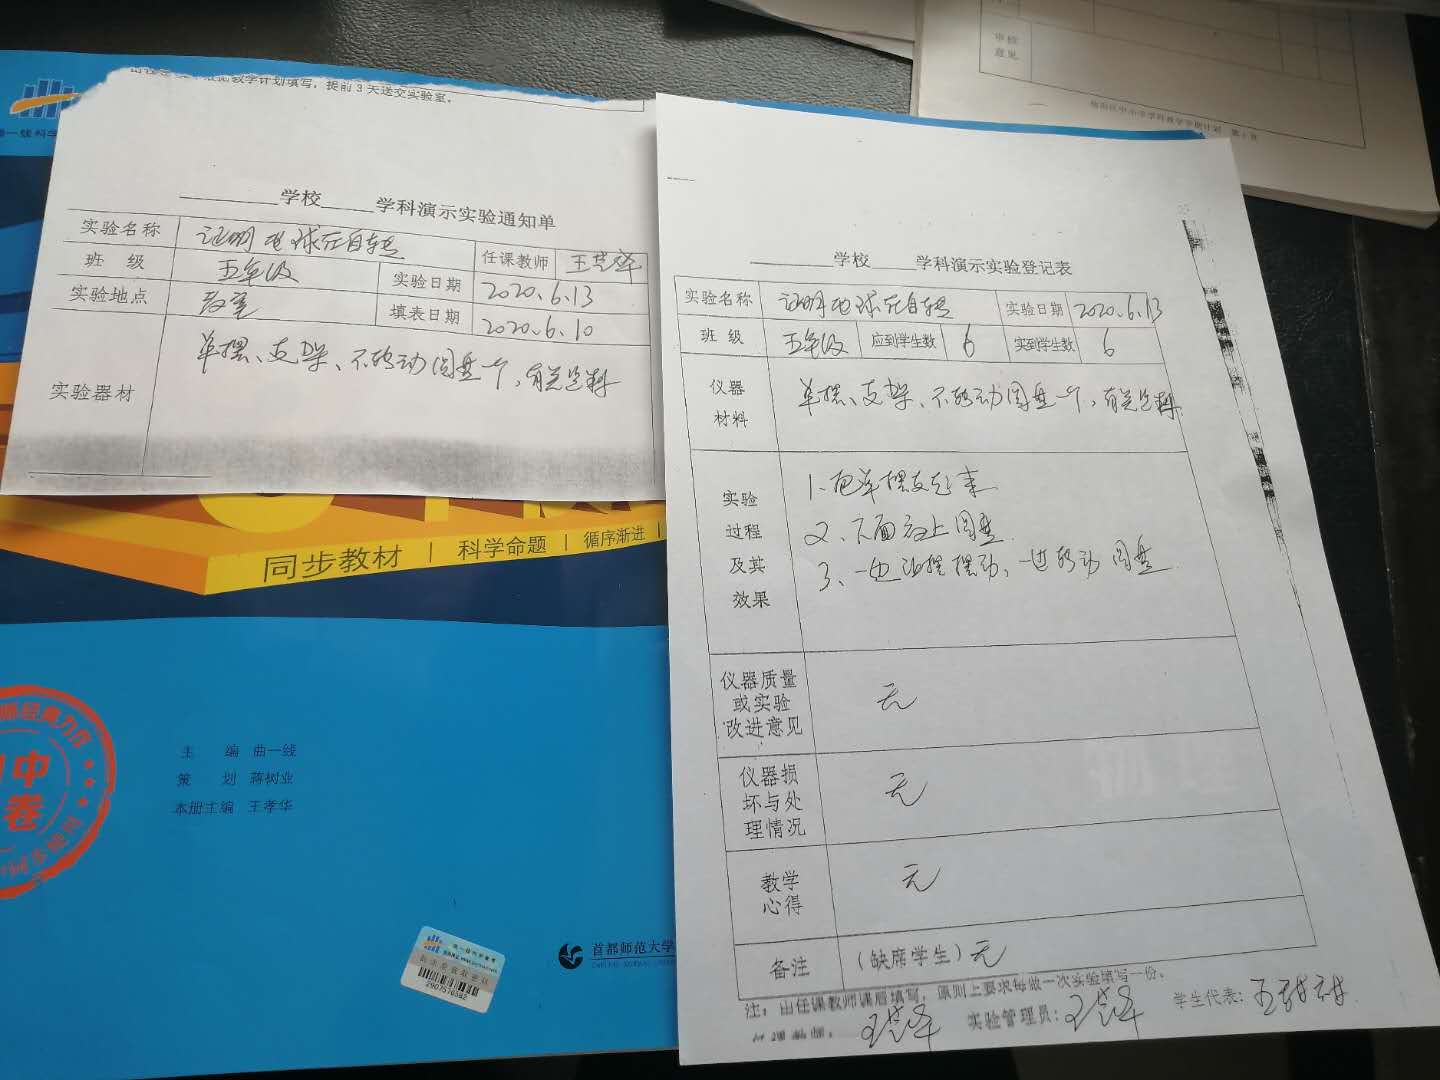 教学计划填写，提前3天送交实验室。
学校 学科演示实验通知单
实验名称 证明地球在自转 任课教师 王艺泽
班级 五年级 实验日期 2020.6.13
实验地点 教室 填表日期 2020.6.10
实验器材 单摆、支架、不转动圆盘一个，有关资料
学校 学科演示实验登记表
实验名称 证明地球在自转 实验日期 2020.6.13
班级 五年级 应到学生数 6 实到学生数 6
仪器
材料
单摆、支架、不转动圆盘一个，有关资料
实验
过程
及其
效果
1、把单摆支起来
2、下面放上圆盘
3、一边让摆摆动，一边转动圆盘
仪器质量
或实验
改进意见
无
仪器损
坏与处
理情况
无
教学
心得
无
备注 （缺席学生）无
注：由任课教师课后填写，原则上要求每做一次实验填写一份。
任课教师： 实验管理员： 学生代表：王甜甜
同步教材 | 科学命题 | 循序渐进
主编 曲一线
策划 蒋树业
本册主编 王孝华
中
卷
首都师范大学
审核
意见